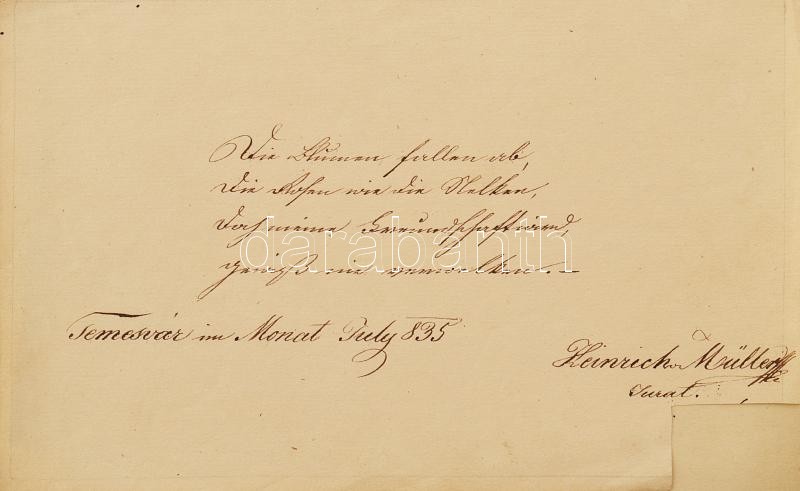 Die Blumen fallen ab,
die Rosen wie die Nelken,
doch meine Freundschaft wird,
gewiß nie verwelken. –
darabanth
Temesvár im Monat July 835
Heinrich Müller
Jurat.